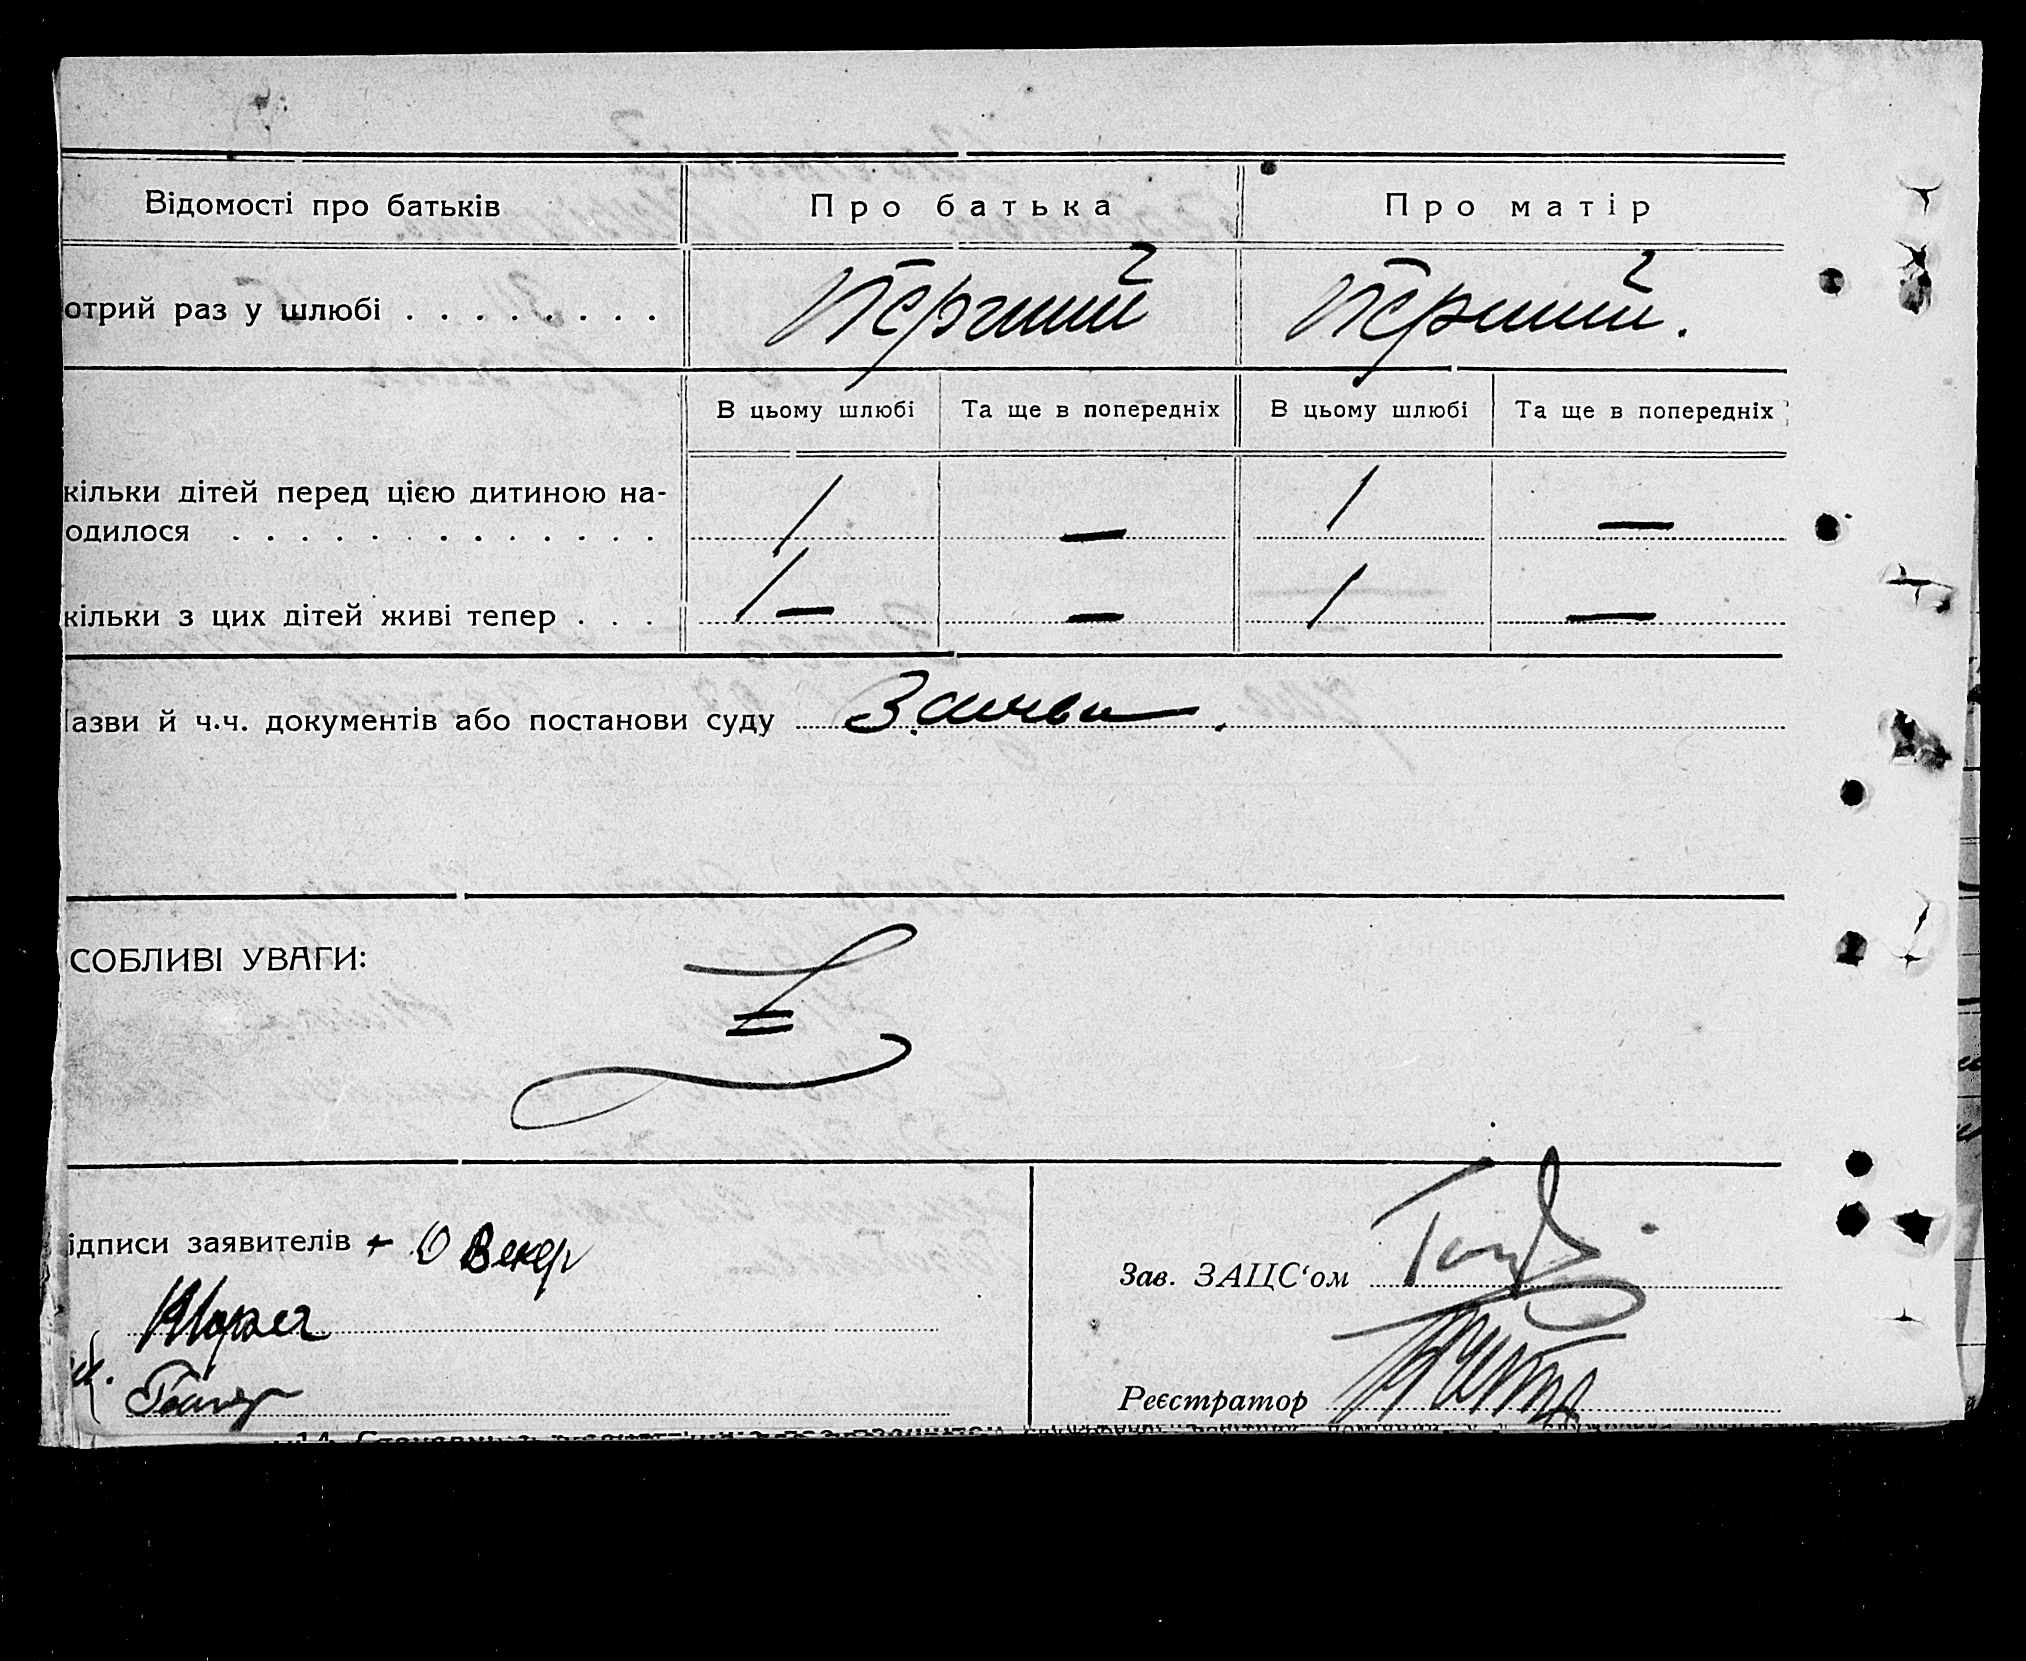 Відомості про батьків Про батька Про матір
отрий раз у шлюбі . . . . . . . . Перший Перший.
В цьому шлюбі Та ще в попередніх В цьому шлюбі Та ще в попередніх
кільки дітей перед цією дитиною на-
одилося . . . . . . . . . . . . . 1 — 1 —
кільки з цих дітей живі тепер . . . 1 — — 1 —
азви й ч.ч. документів або постанови суду Заява.
СОБЛИВІ УВАГИ:
ідписи заявителів
Зав. ЗАЦС‘ом
Реєстратор